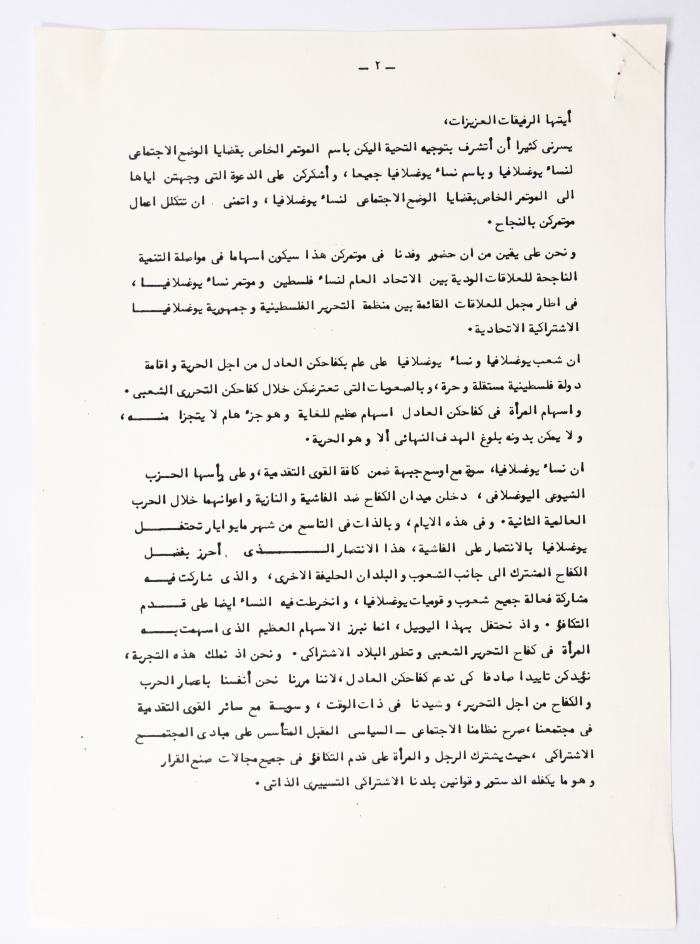 — ٢ —
أيتها الرفيقات العزيزات،
يسرنى كثيرا أن أتشرف بتوجيه التحية اليكن باسم الموتمر الخاص بقضايا الوضع الاجتماعى
لنساء يوغسلافيا و باسم نساء يوغسلافيا جميعا ، و أشكركن على الدعوة التى وجهتن اياها
الى الموتمر الخاص بقضايا الوضع الاجتماعى لنساء يوغسلافيا ، و اتمنى ان تتكلل اعمال
موتمركن بالنجاح ٠
و نحن على يقين من ان حضور وفدنا فى موتمركن هذا سيكون اسهاما فى مواصلة التنمية
الناجحة للعلاقات الودية بين الاتحاد العام لنساء فلسطين و موتمر نساء يوغسلافيــــا ،
فى اطار مجمل للعلاقات القائمة بين منظمة التحرير الفلسطينية و جمهورية يوغسلافيــــا
الاشتراكية الاتحادية ٠
ان شعب يوغسلافيا و نساء يوغسلافيا على علم بكفاحكن العادل من اجل الحرية و اقامة
دولة فلسطينية مستقلة و حرة ، و بالصعوبات التى تعترضكن خلال كفاحكن التحررى الشعبى ٠
و اسهام المرأة فى كفاحكن العادل اسهام عظيم للغاية و هو جزء هام لا يتجزا منــــه ،
و لا يمكن بدونه بلوغ الهدف النهائى ألا و هو الحرية ٠
ان نساء يوغسلافيا، سوية مع اوسع جبهة ضمن كافة القوى التقدمية ، و على رأسها الحــزب
الشيوعى اليوغسلافى ، دخلن ميدان الكفاح ضد الفاشية و النازية و اعوانهما خلال الحرب
العالمية الثانية ٠ و فى هذه الايام ، و بالذات فى التاسع من شهر مايو ايار تحتفــــل
يوغسلافيا بالانتصار على الفاشية ، هذا الانتصار الــــــــذى أحرز بفضــــل
الكفاح المشترك الى جانب الشعوب و البلدان الحليفة الاخرى ، و الذى شاركت فيــــه
مشاركة فعالة جميع شعوب و قوميات يوغسلافيا ، و انخرطت فيه النساء ايضا على قــــدم
التكافؤ ٠ و اذ نحتفل بهذا اليوبيل ، انما نبرز الاسهام العظيم الذى اسهمت بــــه
المرأة فى كفاح التحرير الشعبى و تطور البلاد الاشتراكى ٠ و نحن اذ نملك هذه التجربة ،
نؤيدكن تاييدا صادقا كى ندعم كفاحكن العادل ، لاننا مررنا نحن أنفسنا باعصار الحرب
و الكفاح من اجل التحرير ، و شيدنا فى ذات الوقت ، و سوية مع سائر القوى التقدمية
فى مجتمعنا ، صرح نظامنا الاجتماعى — السياسى المقبل المتأسس على مبادى المجتمــــع
الاشتراكى ، حيث يشترك الرجل و المرأة على قدم التكافؤ فى جميع مجالات صنع القرار
و هو ما يكفله الدستور و قوانين بلدنا الاشتراكى التسييرى الذاتى ٠